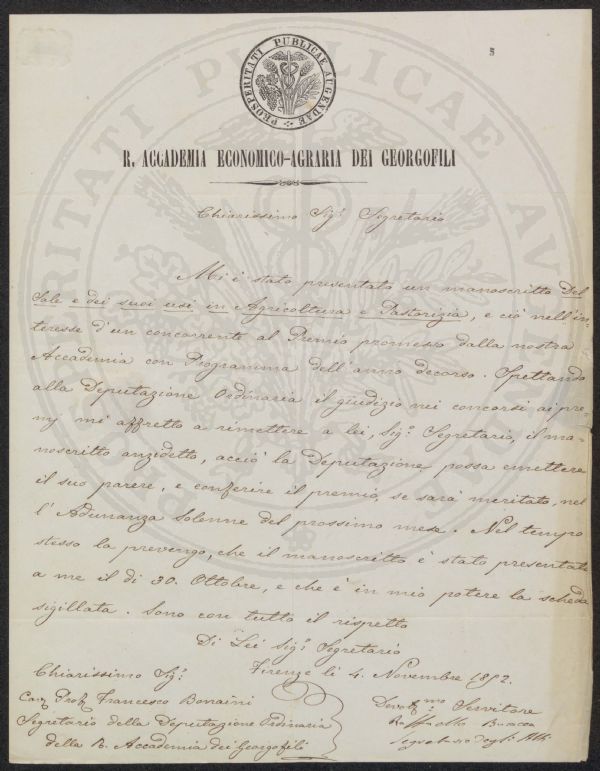 5
PROSPERITATI PUBLICAE AUGENDAE
R. ACCADEMIA ECONOMICO-AGRARIA DEI GEORGOFILI
Chiarissimo Sig.r Segretario
Mi è stato presentato un manoscritto Del
Sale e dei suoi usi in Agricoltura e Pastorizia, e ciò nell'in-
teresse d'un concorrente al Premio promesso dalla nostra
Accademia con Programma dell'anno decorso. Spettando
alla Deputazione Ordinaria il giudizio nei concorsi ai pre-
mj mi affretto a rimettere a lei, Sig.r Segretario, il ma-
noscritto anzidetto, acciò la Deputazione possa emettere
il suo parere, e conferire il premio, se sarà meritato, nel
l'Adunanza Solenne del prossimo mese. Nel tempo
stesso la prevengo, che il manoscritto è stato presentato
a me il dì 30. Ottobre, e che è in mio potere la scheda
sigillata. Sono con tutto il rispetto
Di Lei Sig.r Segretario
Firenze li 4. Novembre 1852.
Chiarissimo Sig.r
Cav. Prof. Francesco Bonaini
Segretario della Deputazione Ordinaria
della R. Accademia dei Georgofili
Devot.mo Servitore
Raffaello Busacca
Segretario degli Atti
PROSPERITATI PUBLICAE AUGENDAE